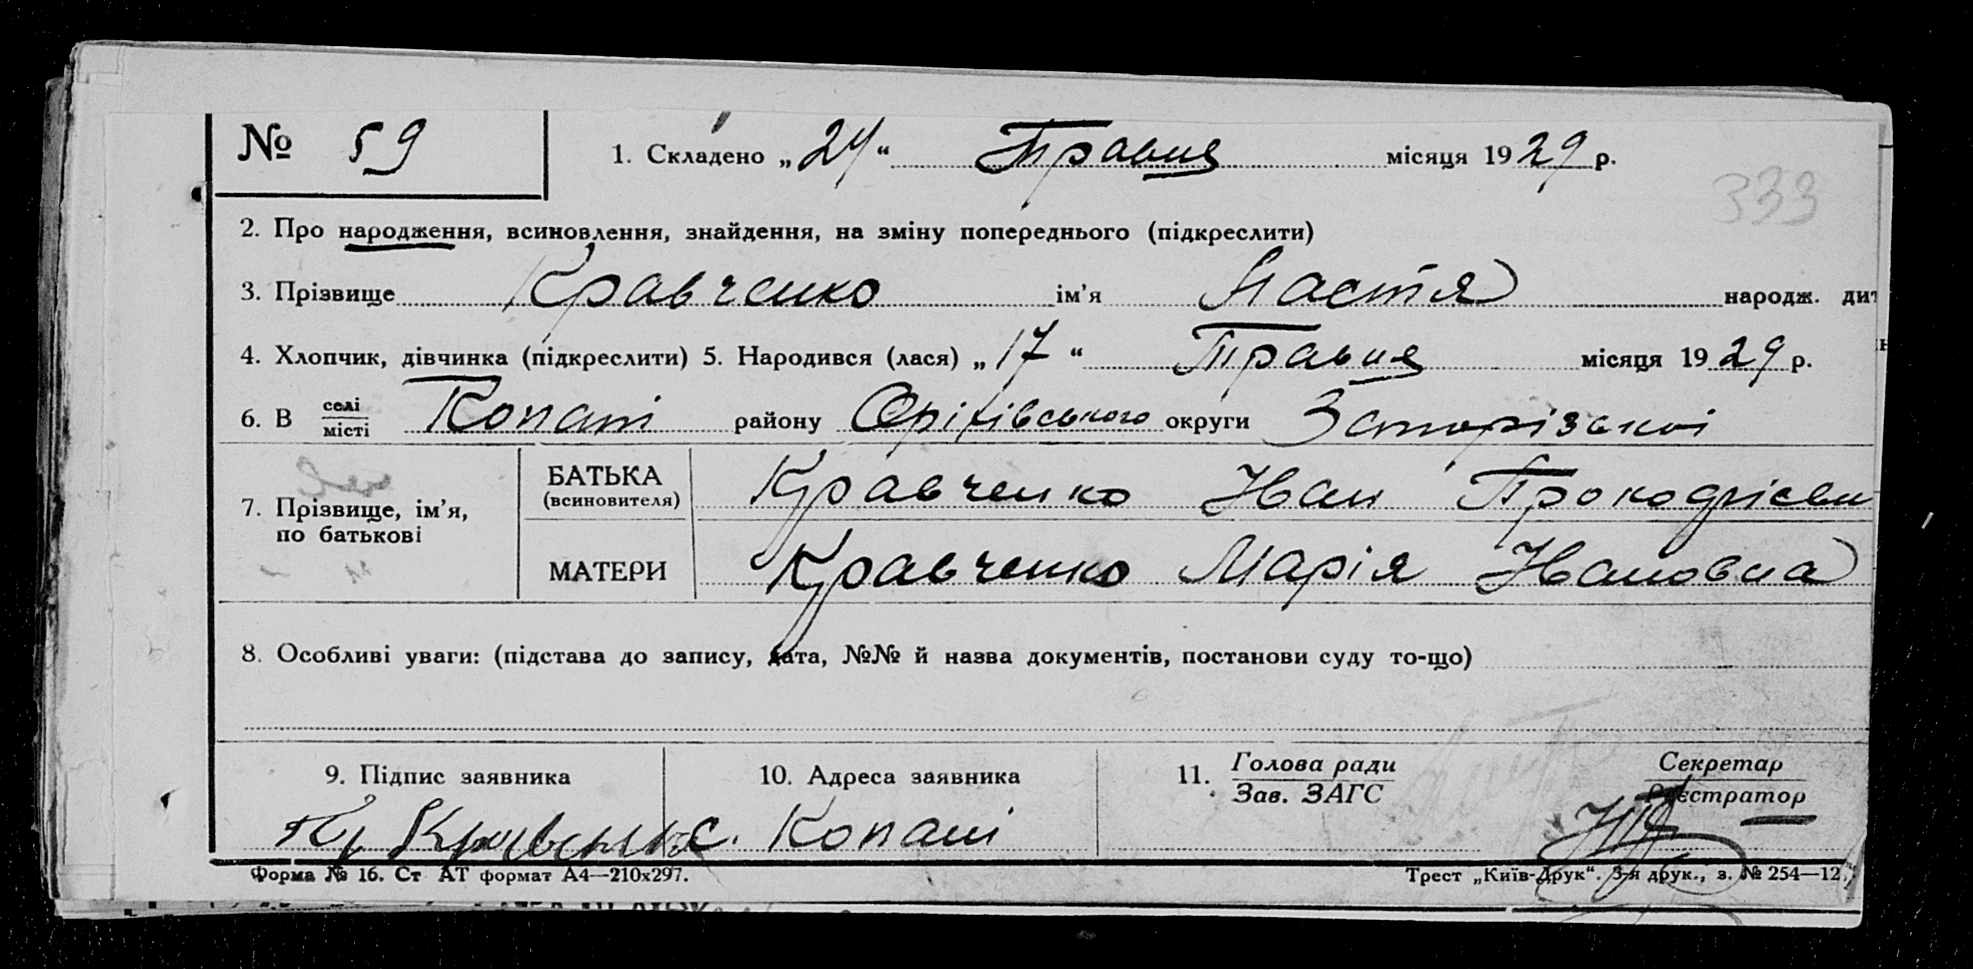 № 59
1. Складено „24“ Травня місяця 1929 р.
333
2. Про народження, всиновлення, знайдення, на зміну попереднього (підкреслити)
3. Прізвище Кравченко ім’я Настя народж. дит
4. Хлопчик, дівчинка (підкреслити) 5. Народився (лася) „17“ Травня місяця 1929 р.
6. В селі місті Копані району Оріхівського округи Запорізької
7. Прізвище, ім’я, по батькові
БАТЬКА (всиновителя) Кравченко Іван Прокофієви
МАТЕРИ Кравченко Марія Івановна
8. Особливі уваги: (підстава до запису, дата, №№ й назва документів, постанови суду то-що)
9. Підпис заявника
Кравченко
10. Адреса заявника
с. Копані
11. Голова ради Зав. ЗАГС
Секретар Реєстратор
Форма № 16. Ст АТ формат А4—210х297.
Трест „Київ-Друк“. 3-я друк., з. № 254—12